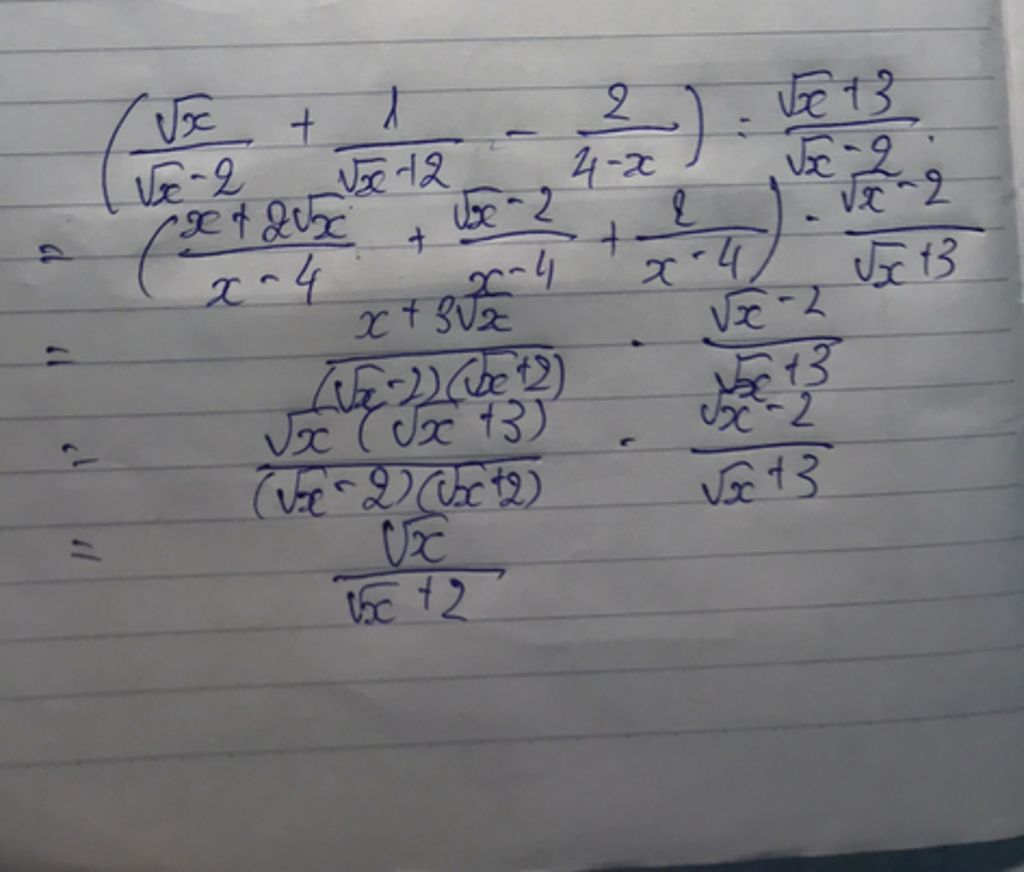 (√x/(√x-2) + 1/(√x+2) - 2/(4-x)) : (√x+3)/(√x-2).
= ((x+2√x)/(x-4) + (√x-2)/(x-4) + 2/(x-4)) · (√x-2)/(√x+3)
= (x+3√x)/((√x-2)(√x+2)) · (√x-2)/(√x+3)
= (√x(√x+3))/((√x-2)(√x+2)) · (√x-2)/(√x+3)
= √x/(√x+2)